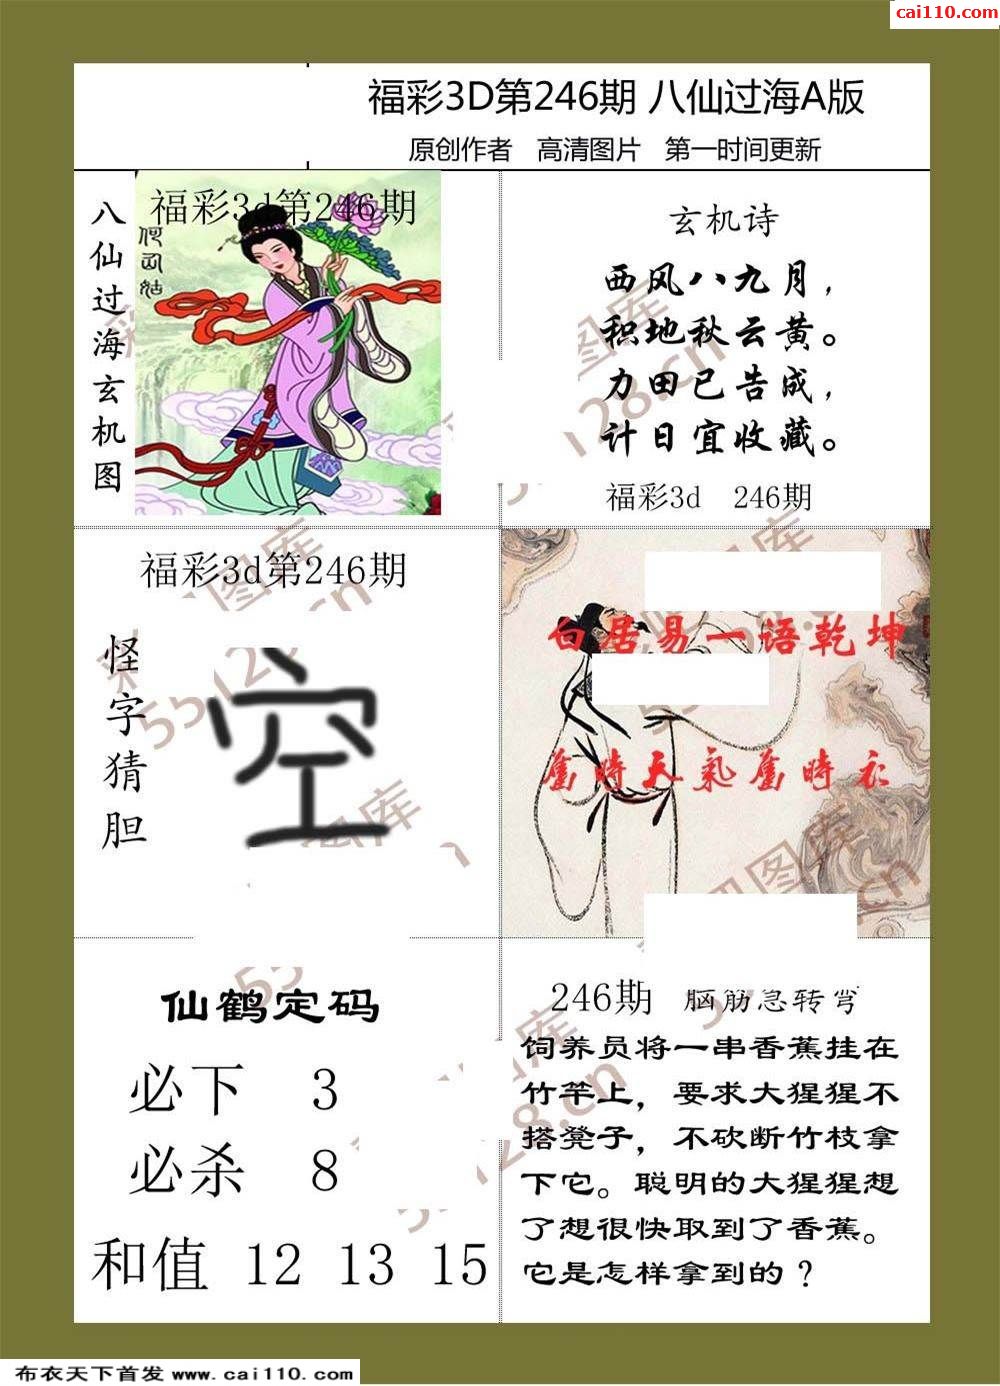 cai110.com
福彩3D第246期 八仙过海A版
原创作者 高清图片 第一时间更新
八仙过海玄机图
福彩3d第246期
何仙姑
玄机诗
西风八九月，
积地秋云黄。
力田已告成，
计日宜收藏。
福彩3d 246期
福彩3d第246期
怪字猜胆
空
白居易一语乾坤
旧時天氣旧時衣
仙鹤定码
必下 3
必杀 8
和值 12 13 15
246期 脑筋急转弯
饲养员将一串香蕉挂在
竹竿上，要求大猩猩不
搭凳子，不砍断竹枝拿
下它。聪明的大猩猩想
了想很快取到了香蕉。
它是怎样拿到的？
彩吧图库
55128.cn
布衣天下首发 www.cai110.com